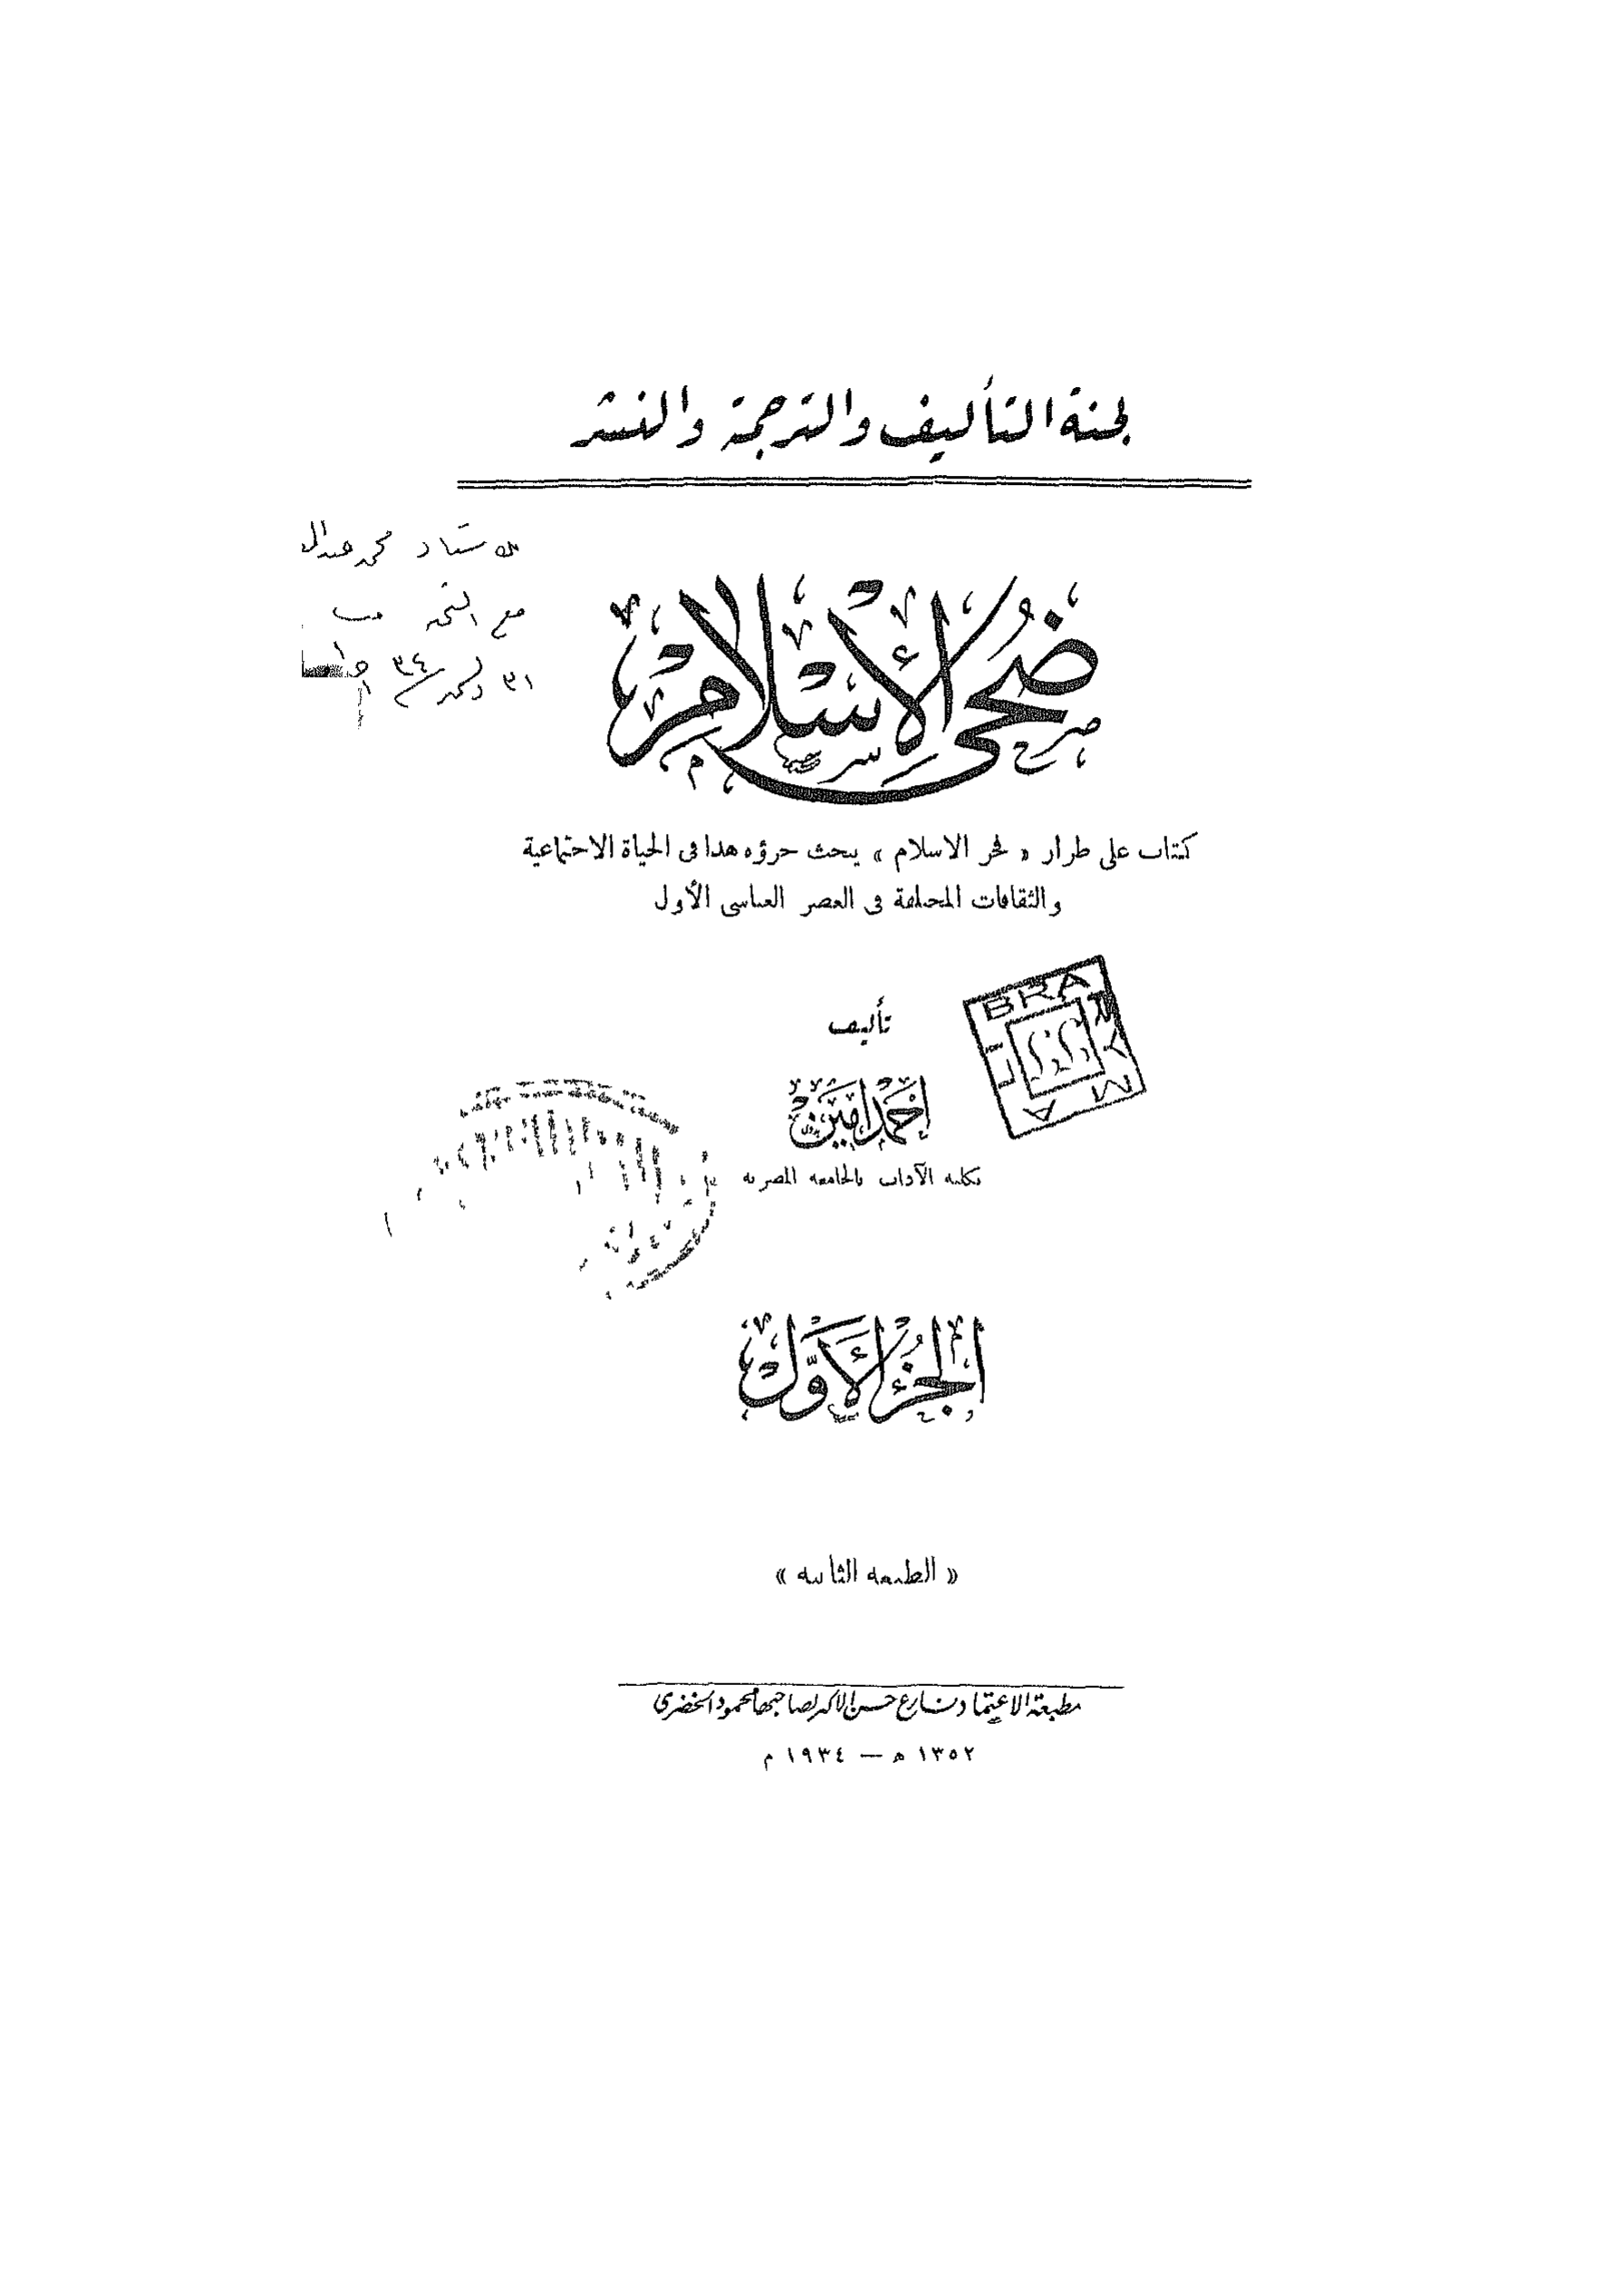 لجنة التأليف والترجمة والنشر
ضُحَى الإِسْلَام
كتاب على طراز « فجر الاسلام » يبحث جزؤه هذا فى الحياة الاجتماعية
والثقافات المختلفة فى العصر العباسى الأول
تأليف
أحمد أمين
بكلية الآداب بالجامعة المصرية
الجزء الأول
« الطبعة الثانية »
مطبعة الاعتماد بشارع حسن الاكبر لصاحبها محمود الخضرى
١٣٥٢ ه — ١٩٣٤ م